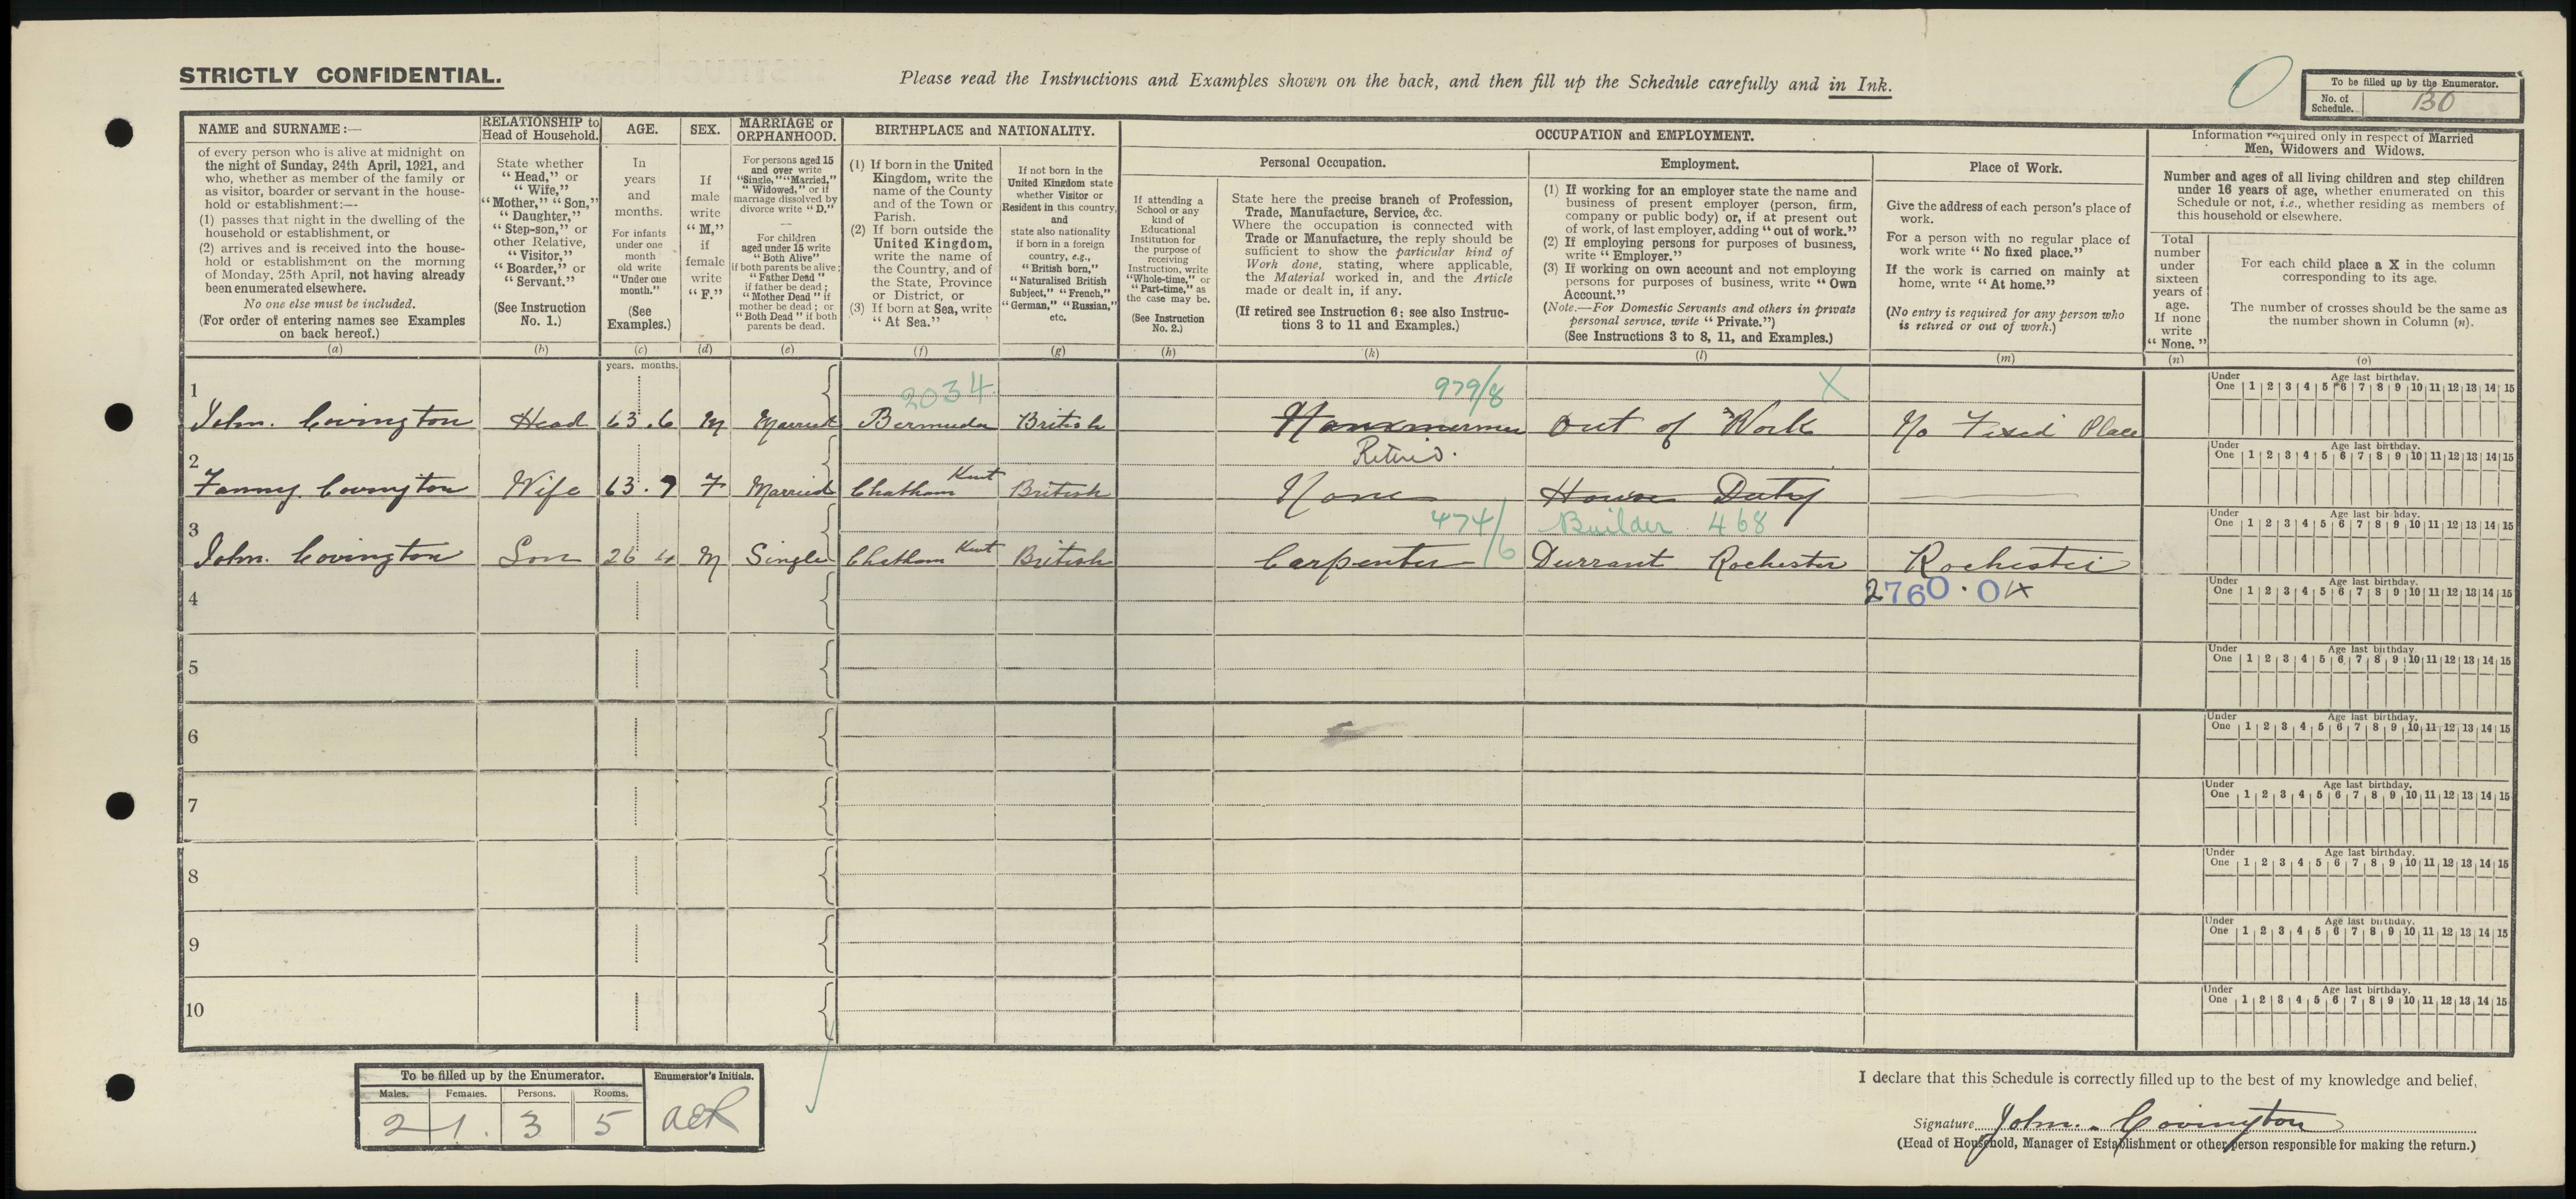 STRICTLY CONFIDENTIAL.
Please read the Instructions and Examples shown on the back, and then fill up the Schedule carefully and in Ink.
To be filled up by the Enumerator.
No. of Schedule. 130
NAME and SURNAME:—
of every person who is alive at midnight on
the night of Sunday, 24th April, 1921, and
who, whether as member of the family or
as visitor, boarder or servant in the house-
hold or establishment:—
(1) passes that night in the dwelling of the
household or establishment, or
(2) arrives and is received into the house-
hold or establishment on the morning
of Monday, 25th April, not having already
been enumerated elsewhere.
No one else must be included.
(For order of entering names see Examples
on back hereof.)
(a)
RELATIONSHIP to
Head of Household.
State whether
"Head," or
"Wife,"
"Mother," "Son,"
"Daughter,"
"Step-son," or
other Relative,
"Visitor,"
"Boarder," or
"Servant."
(See Instruction
No. 1.)
(b)
AGE.
In
years
and
months.
For infants
under one
month
old write
"Under one
month."
(See
Examples.)
(c)
SEX.
If
male
write
"M,"
if
female
write
"F."
(d)
MARRIAGE or
ORPHANHOOD.
For persons aged 15
and over write
"Single," "Married,"
"Widowed," or if
marriage dissolved by
divorce write "D."
For children
aged under 15 write
"Both Alive"
if both parents be alive;
"Father Dead"
if father be dead;
"Mother Dead" if
mother be dead; or
"Both Dead" if both
parents be dead.
(e)
BIRTHPLACE and NATIONALITY.
(1) If born in the United
Kingdom, write the
name of the County
and of the Town or
Parish.
(2) If born outside the
United Kingdom,
write the name of
the Country, and of
the State, Province
or District, or
(3) If born at Sea, write
"At Sea."
(f)
If not born in the
United Kingdom state
whether Visitor or
Resident in this country,
and
state also nationality
if born in a foreign
country, e.g.,
"British born,"
"Naturalised British
Subject," "French,"
"German," "Russian,"
etc.
(g)
OCCUPATION and EMPLOYMENT.
If attending a
School or any
kind of
Educational
Institution for
the purpose of
receiving
Instruction, write
"Whole-time," or
"Part-time," as
the case may be.
(See Instruction
No. 2.)
(h)
Personal Occupation.
State here the precise branch of Profession,
Trade, Manufacture, Service, &c.
Where the occupation is connected with
Trade or Manufacture, the reply should be
sufficient to show the particular kind of
Work done, stating, where applicable,
the Material worked in, and the Article
made or dealt in, if any.
(If retired see Instruction 6; see also Instruc-
tions 3 to 11 and Examples.)
(k)
Employment.
(1) If working for an employer state the name and
business of present employer (person, firm,
company or public body) or, if at present out
of work, of last employer, adding "out of work."
(2) If employing persons for purposes of business,
write "Employer."
(3) If working on own account and not employing
persons for purposes of business, write "Own
Account."
(Note.—For Domestic Servants and others in private
personal service, write "Private.")
(See Instructions 3 to 8, 11, and Examples.)
(l)
Place of Work.
Give the address of each person's place of
work.
For a person with no regular place of
work write "No fixed place."
If the work is carried on mainly at
home, write "At home."
(No entry is required for any person who
is retired or out of work.)
(m)
Information required only in respect of Married
Men, Widowers and Widows.
Number and ages of all living children and step children
under 16 years of age, whether enumerated on this
Schedule or not, i.e., whether residing as members of
this household or elsewhere.
Total
number
under
sixteen
years of
age.
If none
write
"None."
(n)
For each child place a X in the column
corresponding to its age.
The number of crosses should be the same as
the number shown in Column (n).
(o)
years. months.
2034 979/8 X
1 John. Covington Head 63.6 M Married Bermuda British Out of Work No Fixed Place
Retired.
2 Fanny Covington Wife 63.7 F Married Chatham Kent British None House Duty
474/6 Builder 468
3 John. Covington Son 26 4 M Single Chatham Kent British Carpenter Durrant Rochester Rochester
2760.0
4
5
6
7
8
9
10
Under One 1 2 3 4 5 6 7 8 9 10 11 12 13 14 15
Age last birthday.
Under One 1 2 3 4 5 6 7 8 9 10 11 12 13 14 15
Age last birthday.
Under One 1 2 3 4 5 6 7 8 9 10 11 12 13 14 15
Age last birthday.
Under One 1 2 3 4 5 6 7 8 9 10 11 12 13 14 15
Age last birthday.
Under One 1 2 3 4 5 6 7 8 9 10 11 12 13 14 15
Age last birthday.
Under One 1 2 3 4 5 6 7 8 9 10 11 12 13 14 15
Age last birthday.
Under One 1 2 3 4 5 6 7 8 9 10 11 12 13 14 15
Age last birthday.
Under One 1 2 3 4 5 6 7 8 9 10 11 12 13 14 15
Age last birthday.
Under One 1 2 3 4 5 6 7 8 9 10 11 12 13 14 15
Age last birthday.
Under One 1 2 3 4 5 6 7 8 9 10 11 12 13 14 15
Age last birthday.
To be filled up by the Enumerator.
Males. Females. Persons. Rooms.
2 1. 3 5
Enumerator's Initials.
I declare that this Schedule is correctly filled up to the best of my knowledge and belief,
Signature John. Covington
(Head of Household, Manager of Establishment or other person responsible for making the return.)